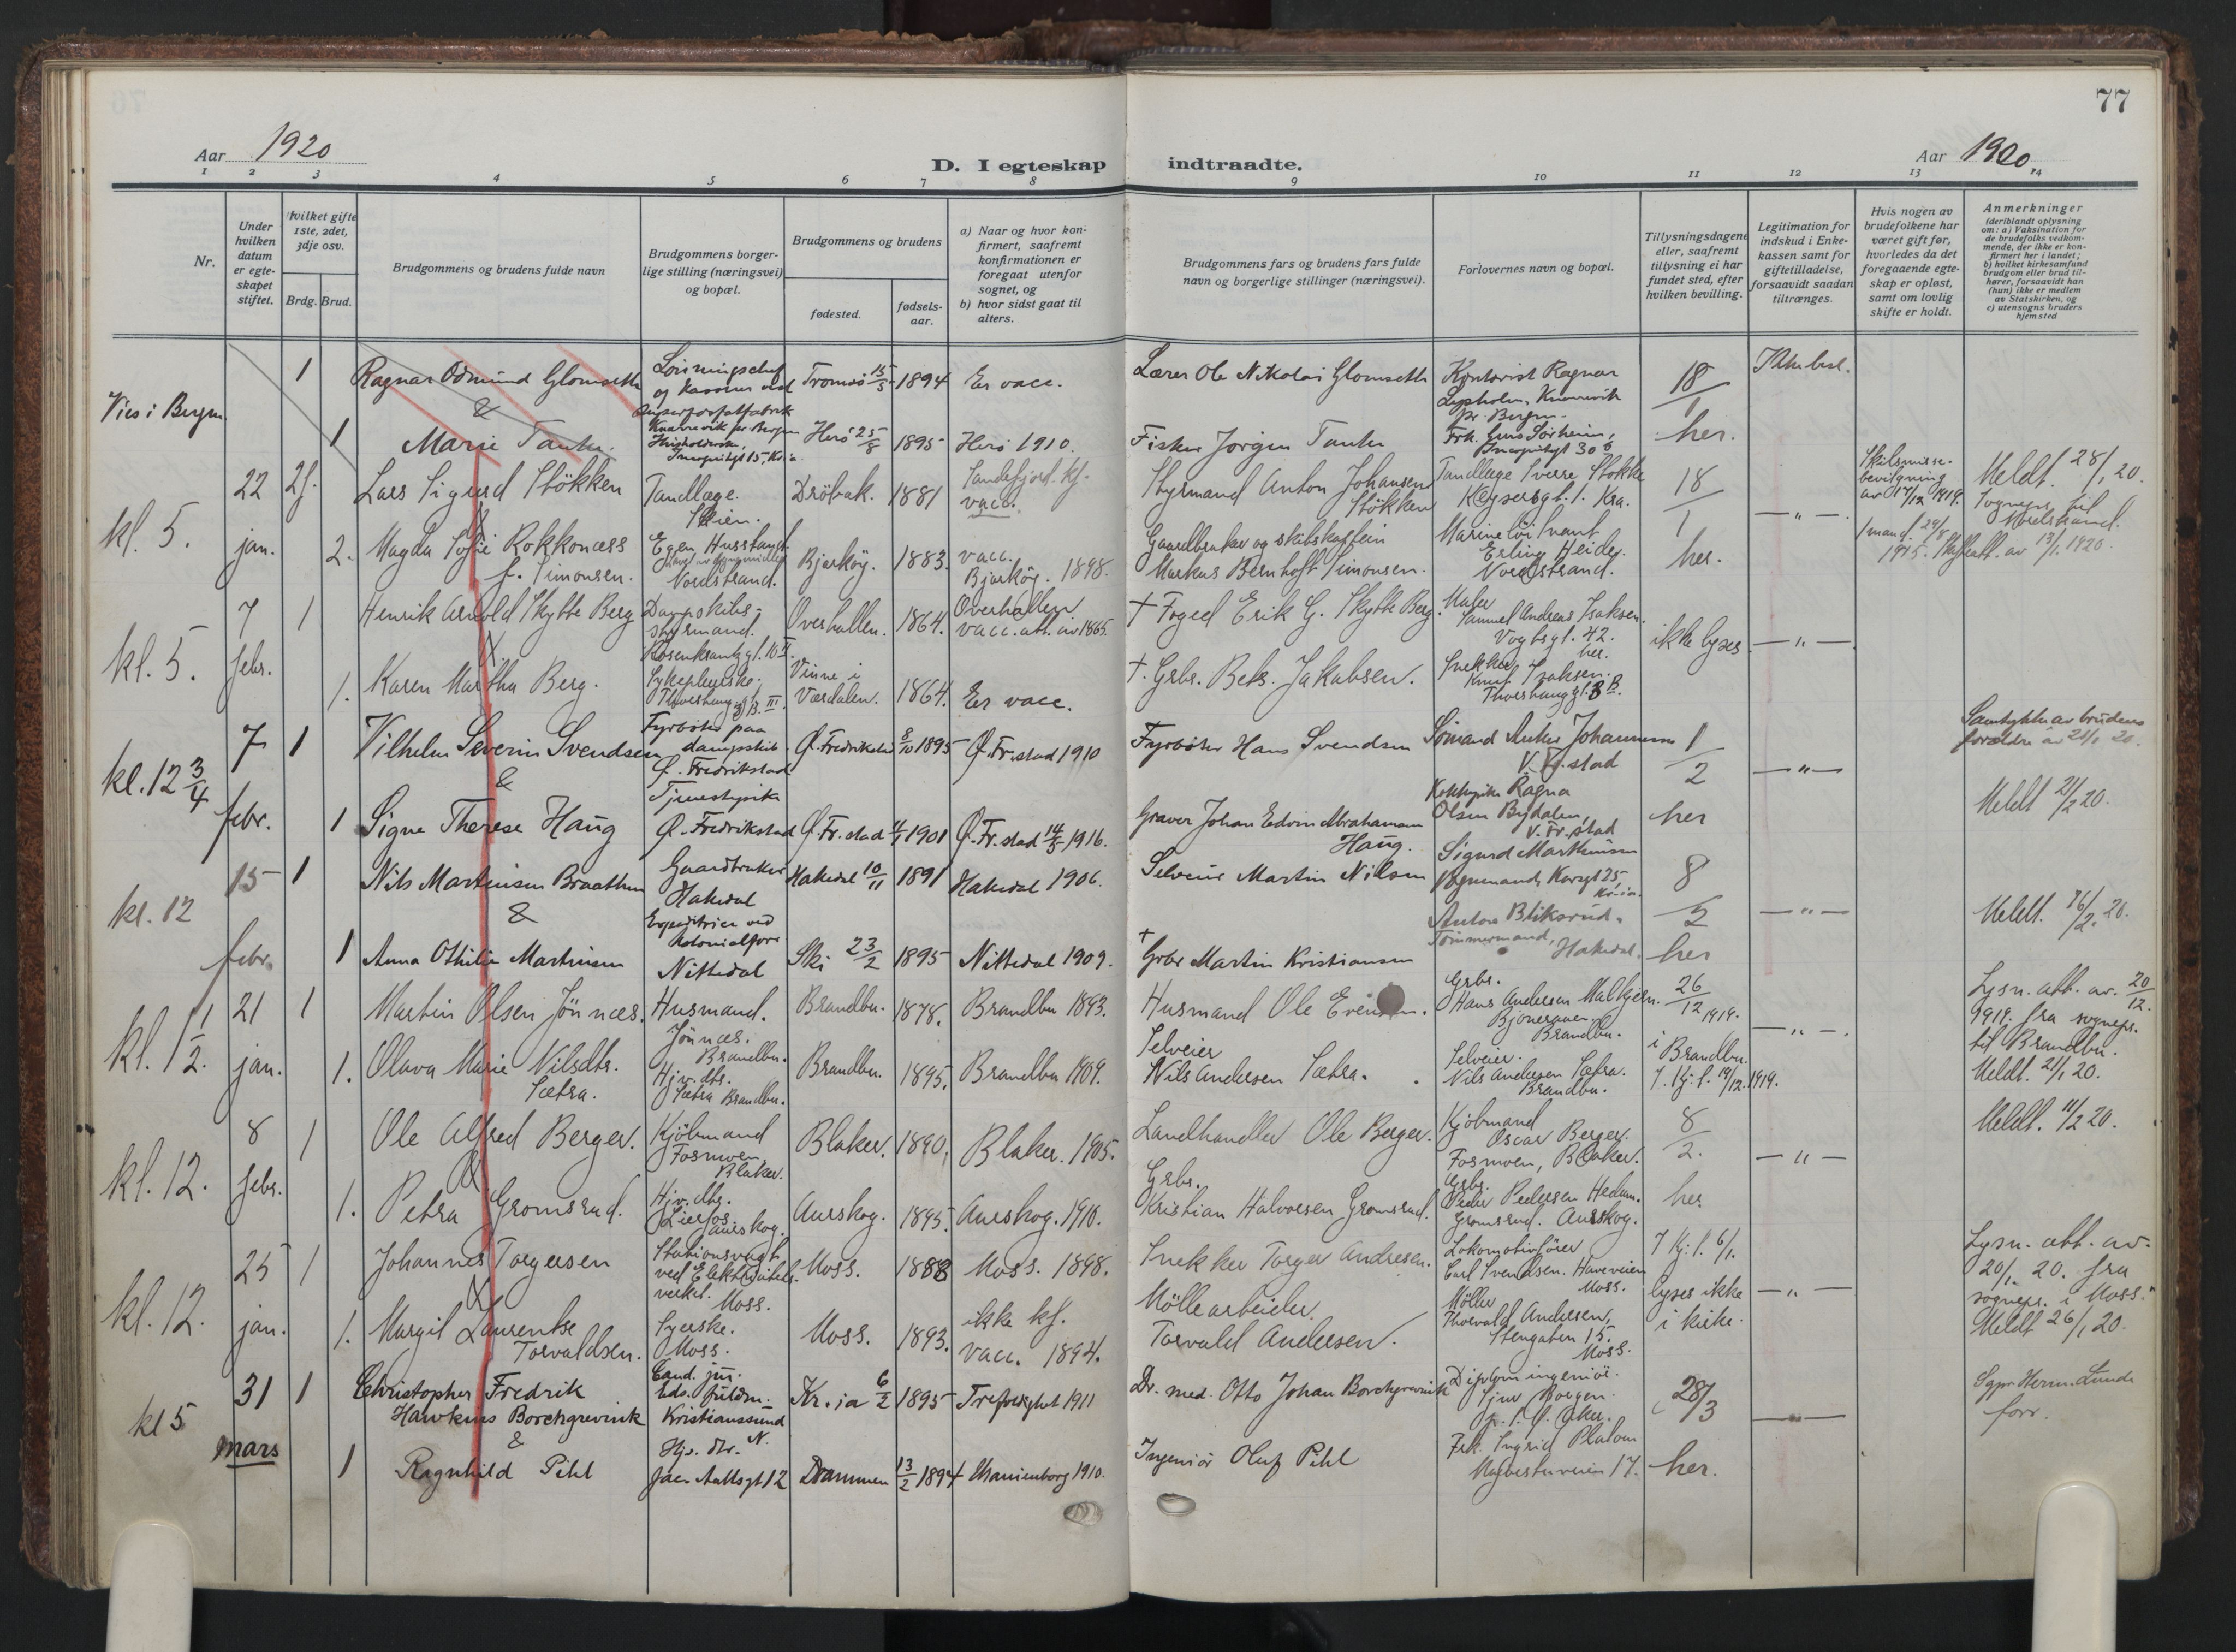 77
Aar 1920
D. I egteskap indtraadte.
Aar 1920
1 2 3 4 5 6 7 8 9 10 11 12 13 14
Nr.
Under hvilken datum er egteskapet stiftet.
Hvilket gifte 1ste, 2det, 3dje osv.
Brdg. Brud.
Brudgommens og brudens fulde navn
Brudgommens borgerlige stilling (næringsvei) og bopæl.
Brudgommens og brudens
fødested.
fødselsaar.
a) Naar og hvor konfirmert, saafremt konfirmationen er foregaat utenfor sognet, og
b) hvor sidst gaat til alters.
Brudgommens fars og brudens fars fulde navn og borgerlige stillinger (næringsvei).
Forlovernes navn og bopæl.
Tillysningsdagene eller, saafremt tillysning ei har fundet sted, efter hvilken bevilling.
Legitimation for indskud i Enkekassen samt for giftetilladelse, forsaavidt saadan tiltrænges.
Hvis nogen av brudefolkene har været gift før, hvorledes da det foregaaende egteskap er opløst, samt om lovlig skifte er holdt.
Anmerkninger
(deriblandt oplysning om: a) Vaksination for de brudefolks vedkommende, der ikke er konfirmert her i landet; b) hvilket kirkesamfund brudgom eller brud tilhører, forsaavidt han (hun) ikke er medlem av Statskirken, og c) utensogns bruders hjemsted
Vies i Bergen
1 Ragnar Odmund Glomseth
og kasserer ved
Tromsö 15/5 1894 Er vacc.
Lærer Ole Nikolai Glomseth
Kontorist Ragnar
pr. Bergen.
18/1 her.
&
1 Marie Tanke.
Herö 25/8 1895 Herö 1910.
Fisker Jörgen Tanke
kl. 5. 22 jan. 2f.
Lars Sigurd Stökken
Tandlæge. Skien.
Dröbak. 1881
Sandefjord. kf. vacc.
Styrmand Anton Johansen Stökken
Tandlæge Sverre Stokke
Keysersgt. 1. Kra.
18/1 her.
—„—
Skilsmissebevilgning av 17/12 1919.
Meldt. 28/1 20.
Sognepr. til Nordstrand.
2. Magda Sofie Rokkoness f. Simonsen.
Nordstrand.
Bjarköy. 1883.
vacc. Bjarköy. 1898.
Gaardbruker og skibskaptein
Markus Bernhoft Simonsen.
Marinelöitnant
Erling Heide.
Nordstrand.
kl. 5. 7 febr. 1
Henrik Arnold Skytte Berg
Dampskibsstyrmand.
Rosenkrantzgt. 10 II.
Overhallen. 1864.
Overhallen vacc. att. av 1865.
† Foged Erik G. Skytte Berg.
Maler
Samuel Andreas Isaksen.
Vogtsgt. 42. her.
ikke lyses —„—
1. Karen Martha Berg.
Sykepleierske.
Vinne i Værdalen. 1864. Er vacc.
† Grbr. Bets. Jakobsen.
Snekker
Knut Isaksen.
kl. 12 3/4 7 febr. 1
Vilhelm Severin Svendsen
Fyrböter paa dampskib
Ø. Fredrikstad
Ø. Fredrikstad 8/10 1895 Ø. Fr.stad 1910
Fyrböter Hans Svendsen
Sömand Anker Johannesen
V. Fr.stad
1/2 her
—„—
Samtykke av brudens forældre av 21/1 20.
Meldt 21/2 20.
&
1 Signe Therese Haug
Tjenestepike
Ø. Fredrikstad
Ø. Fr. stad 4/1 1901 Ø. Fr. stad 14/5 1916.
Graver Johan Edvin Abrahamsen Haug.
Kokkepike Ragna
Olsen Bydalen,
V. Fr. stad
kl. 12 15 febr. 1
Nils Martinsen Braathen
Gaardbruker
Hakedal
Hakedal 10/11 1891 Hakedal 1906.
Selveier Martin Nilsen
Sigurd Marthinsen
Vognmand, Korsgt 25, Kr.ia.
8/2 her
—„—
Meldt. 16/2. 20.
&
1 Anna Othilie Martinsen
Expeditrice ved kolonialforr
Nittedal
Ski 23/2 1895 Nittedal 1909.
† Grbr Martin Kristiansen
Anton Bliksrud.
Tömmermand, Hakedal.
kl. 1 1/2. 21 jan. 1
Martin Olsen Jönnes.
Husmand.
Jönnes. Brandbu.
Brandbu. 1878. Brandbu 1893.
Husmand Ole Evensen.
Grbr.
Hans Andersen Malbjern.
Brandbu.
26/12 1919. i Brandbu.
—„—
Lysn. att. av. 20/12. 1919. fra sognepr. til Brandbu.
Meldt. 21/1 20.
1. Olava Marie Nilsdtr. Sætra.
Hjv. dtr.
Sætra Brandbu.
Brandbu. 1895. Brandbu 1909.
Selveier
Nils Andersen Sætra.
Selveier.
Nils Andersen Sætra.
Brandbu.
7. Kj. f. 19/12. 1919.
kl. 12. 8 febr. 1
Ole Alfred Berger.
Kjöbmand
Fosmoen. Blaker.
Blaker. 1890. Blaker. 1905.
Landhandler Ole Berger.
Kjöbmand
Oscar Berger.
Fosmoen, Blaker.
8/2. her.
—„—
Meldt. 11/2 20.
&
1. Petra Gromsrud.
Hjv. dtr.
Lierfos Aurskog.
Aurskog. 1895. Aurskog. 1910.
Grbr.
Kristian Halvorsen Gromsrud.
Grbr.
Peder Pedersen Hedum.
Gromsrud. Aurskog.
kl. 12. 25 jan. 1
Johannes Torgersen
Stationsvagt
ved Elektricitetsverket. Moss.
Moss. 1888 Moss. 1898.
Snekker Torger Andresen.
Lokomotivförer
Carl Svendsen. Haveveien Moss.
7 Kj. f. 6/1.
lyses ikke i kirke.
—„—
Lysn. att. av. 20/1. 20. fra sognepr. i Moss.
Meldt 26/1 20.
&
1. Margit Laurentse Torvaldsen.
Syerske. Moss.
Moss. 1893.
ikke kf. vacc. 1894.
Möllearbeider
Torvald Andersen.
Möller
Thorvald Andersen,
Stengaten 15. Moss.
kl 5 31 mars 1
Christopher Fredrik
Hawkins Borchgrevink
Cand. jur.
Kristianssund N.
Kr.ia 6/2 1895 Trefoldighet 1911
Dr. med. Otto Johan Borchgrevink
Diplomingeniör.
28/3 her.
—„—
Sgpr. Herm. Lunde forr.
&
1 Ragnhild Pihl
Hjv. dtr.
Jac. Aallsgt 12
Drammen 13/2 1894 Uranienborg 1910.
Ingeniör Oluf Pihl
Frk. Ingrid Platou